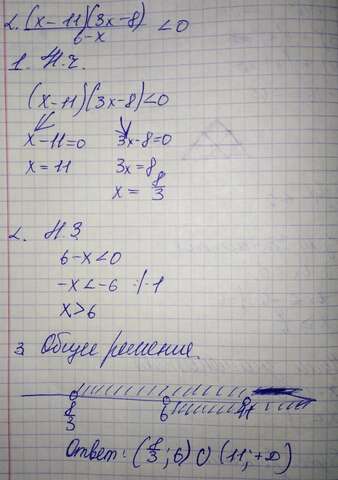 2. (x-11)(3x-8)/6-x <0
1. Н.ч.
(x-11)(3x-8)<0
x-11=0 3x-8=0
x=11 3x=8
x= 8/3
2. Н.З.
6-x<0
-x<-6 :/-1
x>6
3. Общее решение.
8/3 6 11
Ответ: (8/3; 6) U (11; +∞)